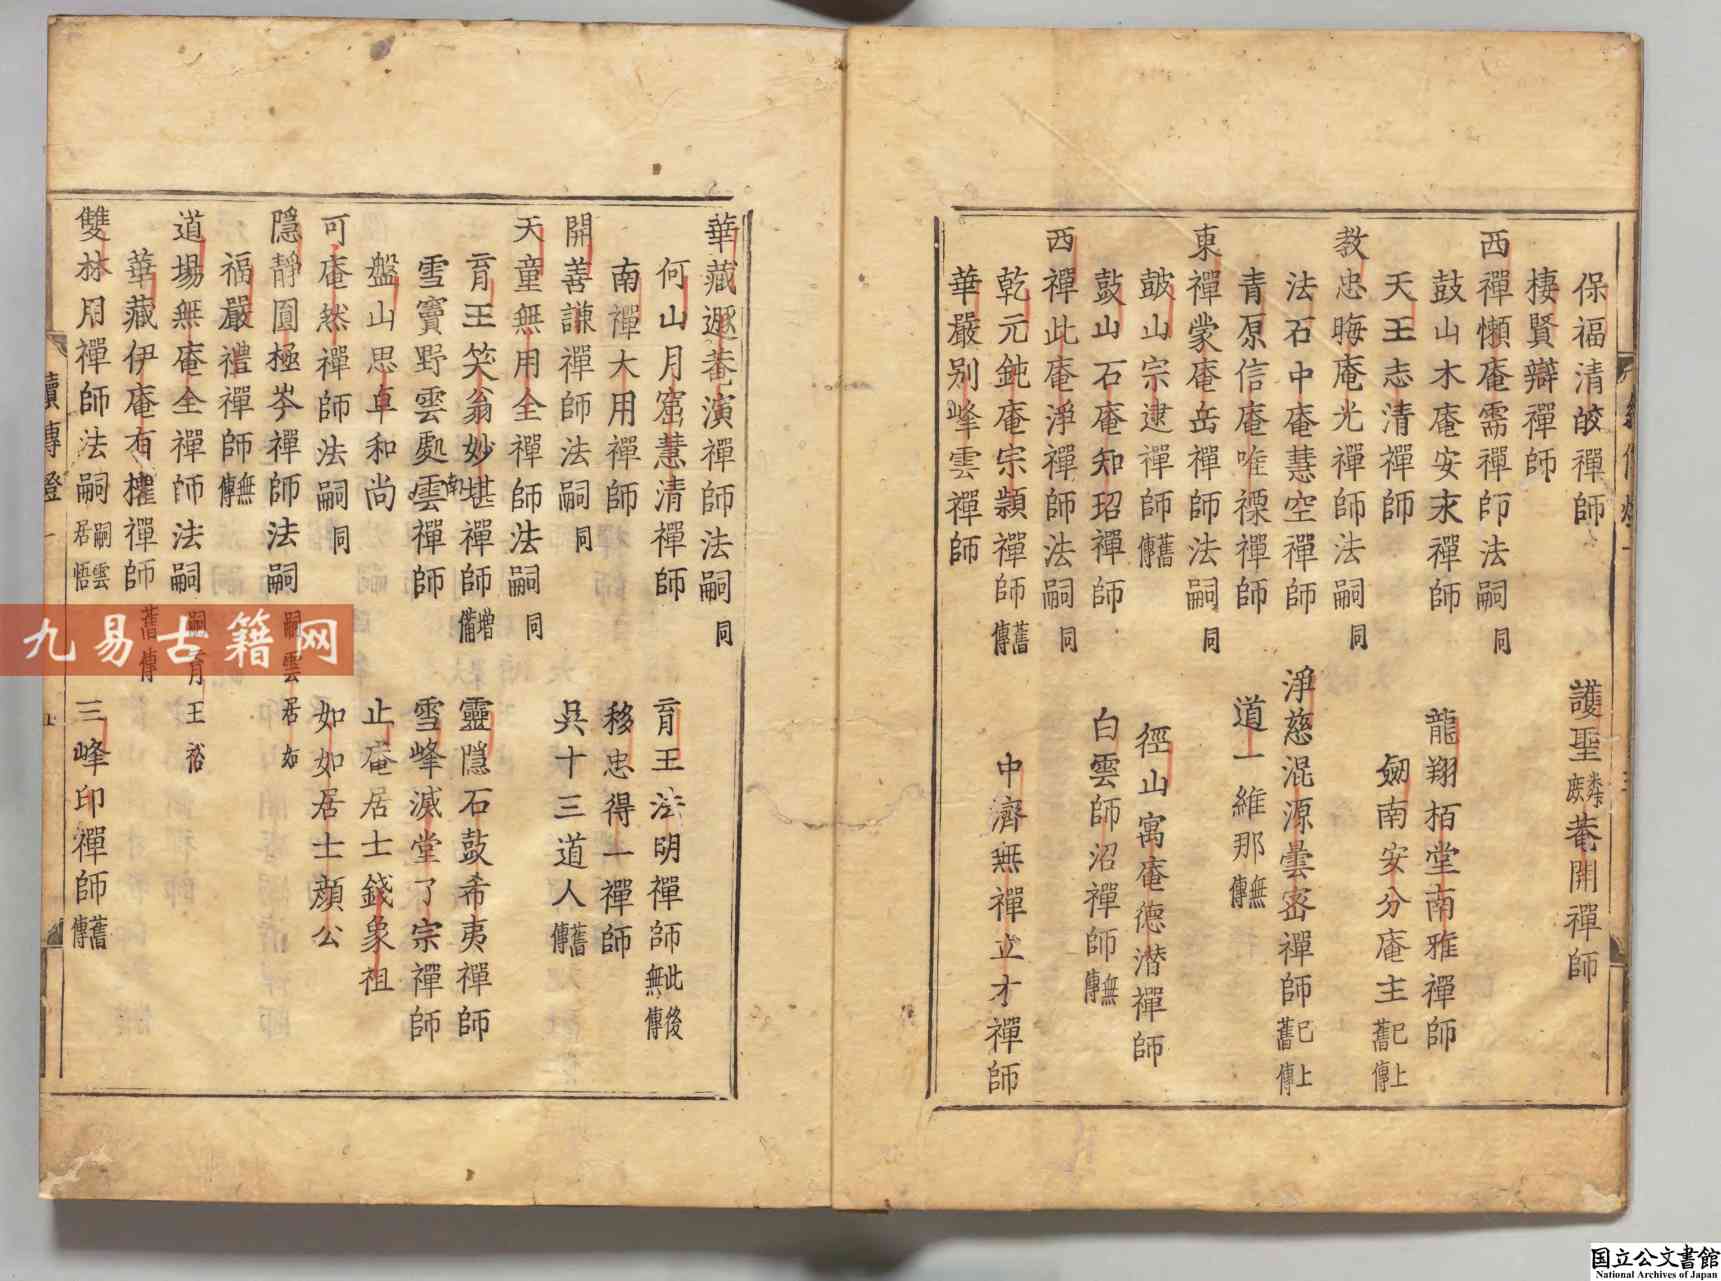 保福清皎禪師　護聖麟菴開禪師
棲賢辯禪師
西禪懶庵需禪師法嗣同
鼓山木庵安永禪師　龍翔栢堂南雅禪師
天王志清禪師　劒南安分庵主已上舊傳
教忠晦庵光禪師法嗣同
法石中庵慧空禪師　淨慈混源曇密禪師已上舊傳
青原信庵唯禋禪師　道一維那無傳
東禪蒙庵岳禪師法嗣同
鼓山宗逮禪師舊傳　徑山寓庵德潛禪師
鼓山石庵知玿禪師　白雲師沼禪師無傳
西禪此庵淨禪師法嗣同
乾元鈍庵宗顥禪師舊傳　中濟無禪立才禪師
華嚴別峰雲禪師
華藏遯菴演禪師法嗣同
何山月窟慧清禪師　育王法明禪師此後無傳
南禪大用禪師　移忠得一禪師
開善謙禪師法嗣同　吳十三道人舊傳
天童無用全禪師法嗣同
育王笑翁妙堪禪師增備　靈隱石鼓希夷禪師
雪竇野雲處南雲禪師　雪峰滅堂了宗禪師
盤山思卓和尚　止庵居士錢象祖
可庵然禪師法嗣同　如如居士顏公
隱靜圓極岑禪師法嗣嗣雲居如
福嚴禮禪師無傳
道場無庵全禪師法嗣嗣育王裕
華藏伊庵有權禪師舊傳
雙林用禪師法嗣嗣雲居悟　三峰印禪師舊傳
續傳燈
九易古籍网
国立公文書館
National Archives of Japan